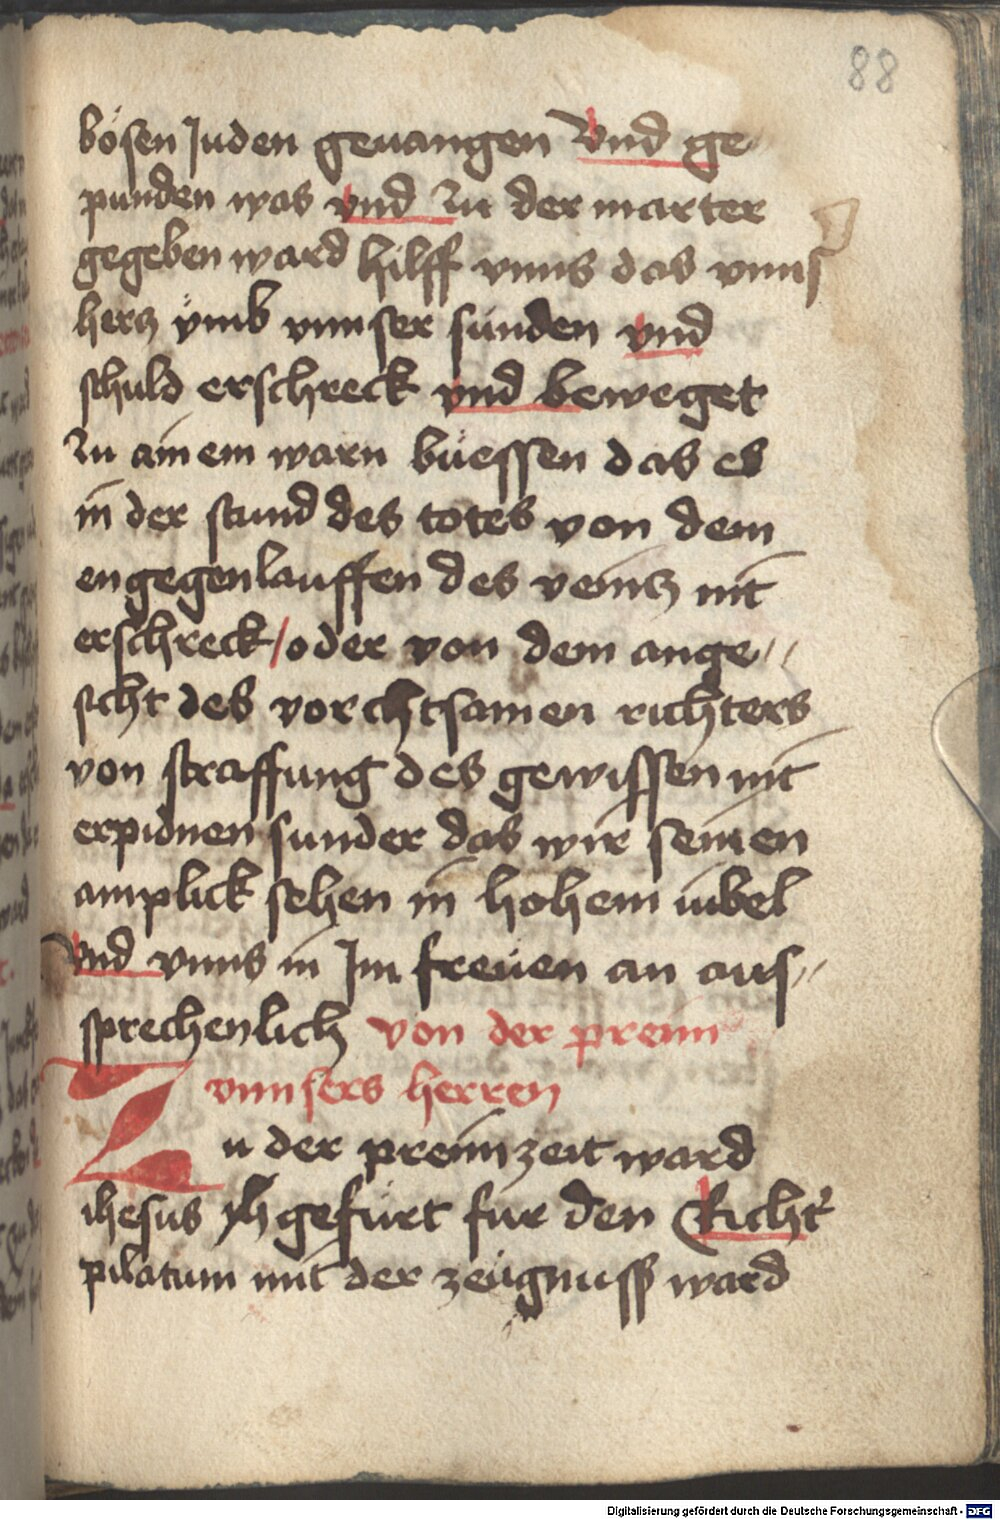 88
bösen Juden geuangen Vnd ge
punden was vnd zu der marter
gegeben ward hilff vnns das vnns
hercz vmb vnnser sünden vnd
schuld erschreck vnd beweget
zu ainem warn büessen das es
in der stund des totes von dem
engegenlauffen des veintz nit
erschreck / oder von dem ange
sicht des vorchtsamen richters
von straffung des gewissen nit
erpidnen sunder das wir seinen
anplick sehen in hohem iubel
Vnd vnns in Im freüen an aus
sprechenlich von der preim
vnnsers herren
Zu der preim zeit ward
ihesus gefürt für den Richt'
pilatum mit der zeügnuss ward
Digitalisierung gefördert durch die Deutsche Forschungsgemeinschaft - DFG